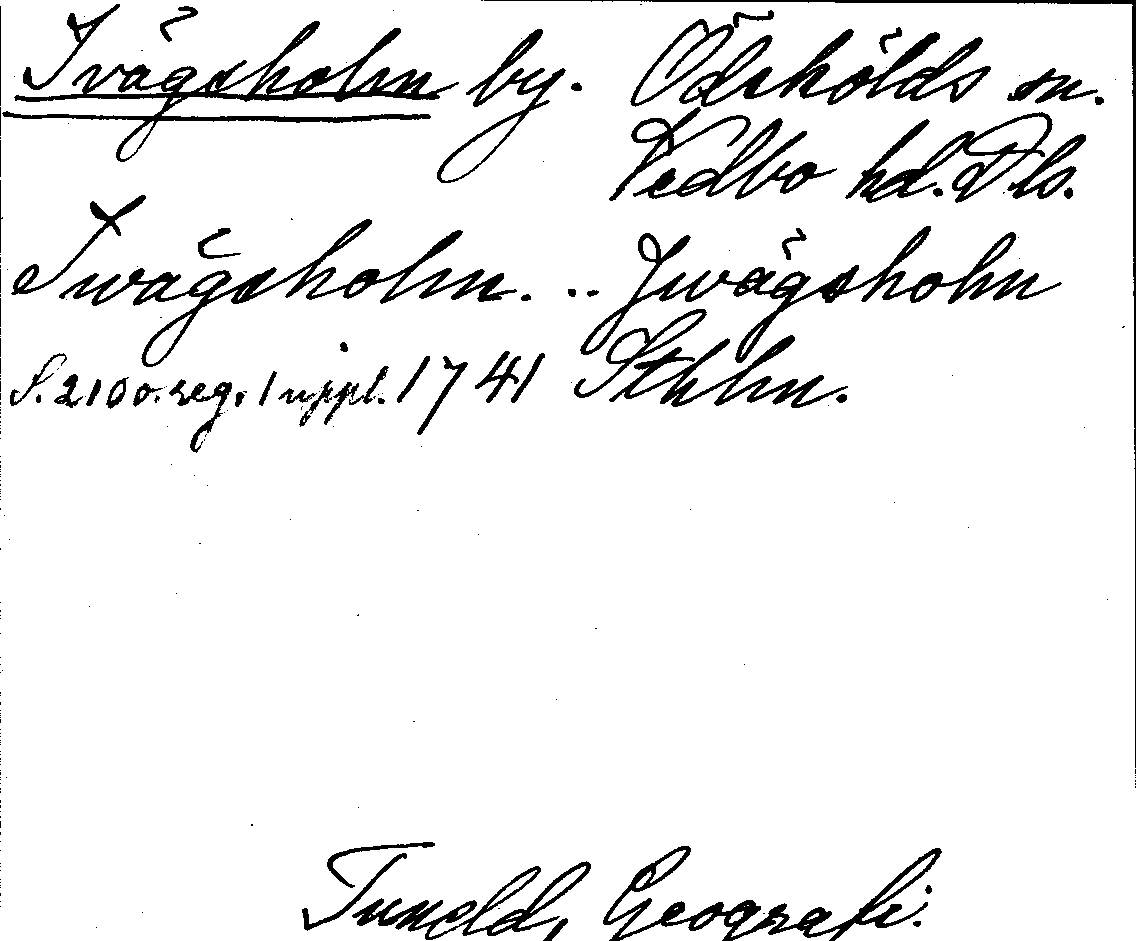 Ivägsholm by. Ödskölds sn.
Vedbo hd. Dls.
Iwägsholm. .. Jwägsholm
S. 210 o. reg. 1 uppl. 1741 Sthlm.
Tuneld, Geografi.